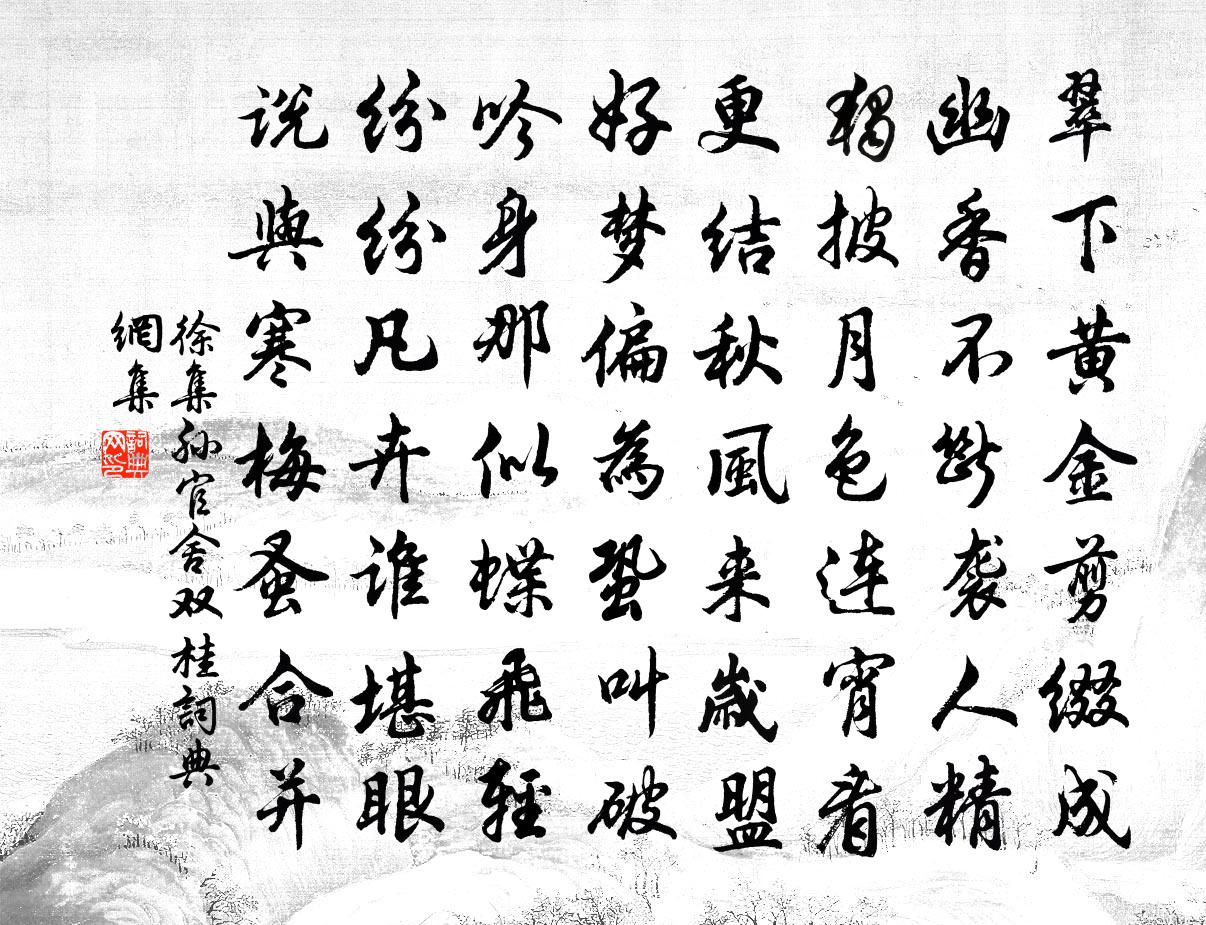 翠下黄金剪缀成
幽香不断袭人精
獨披月色連宵看
更结秋風来歲盟
好梦偏為蛩叫破
吟身那似蝶飛輕
纷纷凡卉谁堪眼
说與寒梅蚤合并
徐集孙官舍双桂詞典
網集
詞典